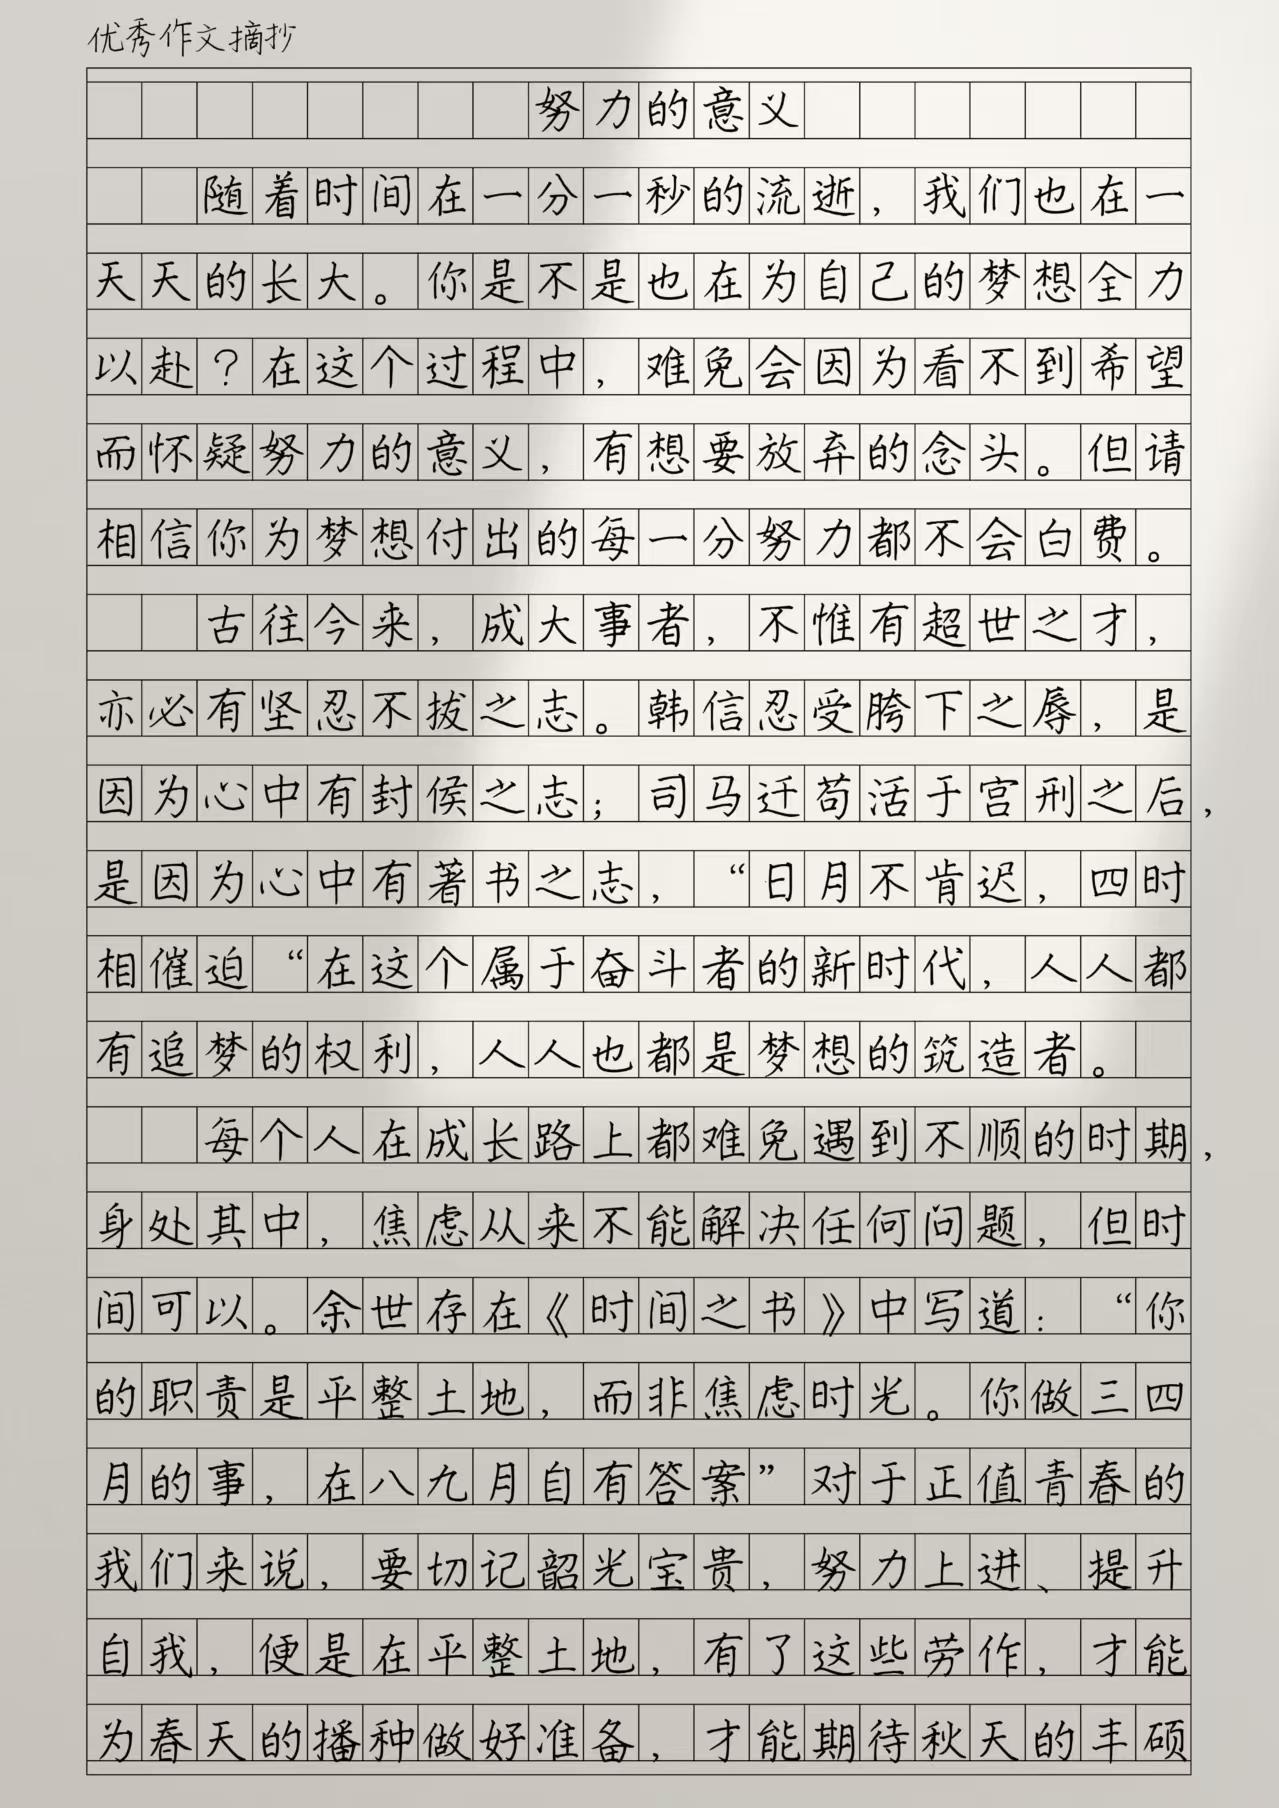 优秀作文摘抄
努力的意义
随着时间在一分一秒的流逝，我们也在一
天天的长大。你是不是也在为自己的梦想全力
以赴？在这个过程中，难免会因为看不到希望
而怀疑努力的意义，有想要放弃的念头。但请
相信你为梦想付出的每一分努力都不会白费。
古往今来，成大事者，不惟有超世之才，
亦必有坚忍不拔之志。韩信忍受胯下之辱，是
因为心中有封侯之志；司马迁苟活于宫刑之后，
是因为心中有著书之志，“日月不肯迟，四时
相催迫“在这个属于奋斗者的新时代，人人都
有追梦的权利，人人也都是梦想的筑造者。
每个人在成长路上都难免遇到不顺的时期，
身处其中，焦虑从来不能解决任何问题，但时
间可以。余世存在《时间之书》中写道：“你
的职责是平整土地，而非焦虑时光。你做三四
月的事，在八九月自有答案”对于正值青春的
我们来说，要切记韶光宝贵，努力上进、提升
自我，便是在平整土地，有了这些劳作，才能
为春天的播种做好准备，才能期待秋天的丰硕